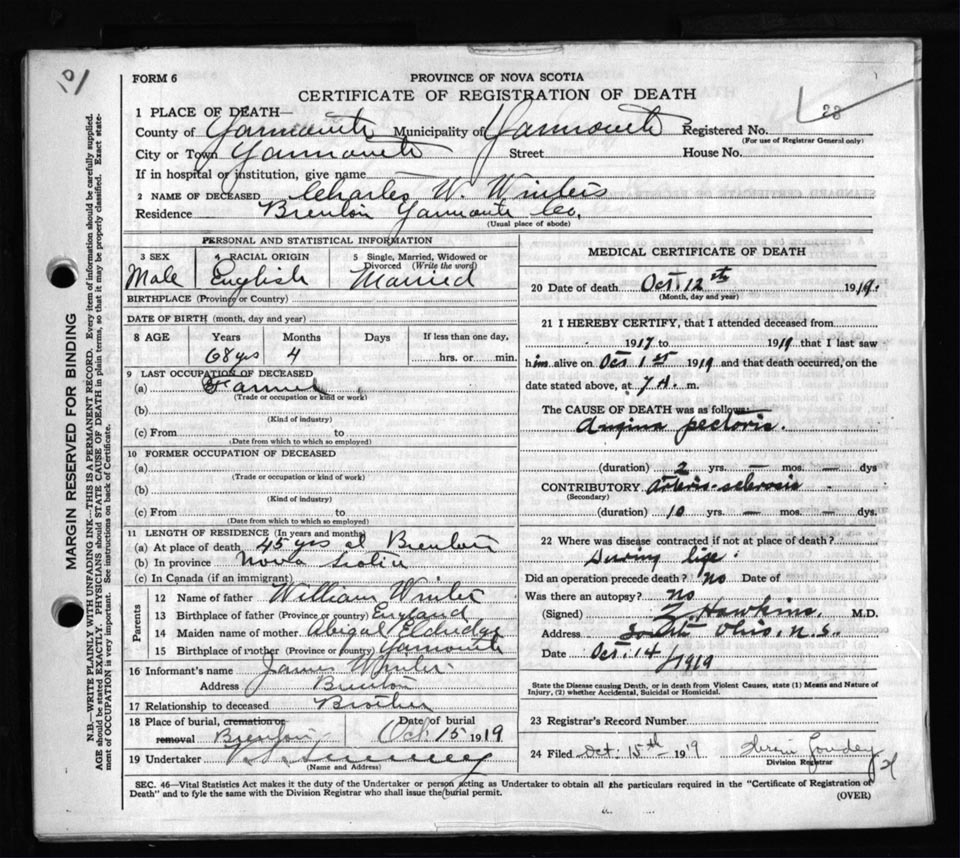 101
FORM 6
PROVINCE OF NOVA SCOTIA
CERTIFICATE OF REGISTRATION OF DEATH
1 PLACE OF DEATH—
County of Yarmouth Municipality of Yarmouth Registered No. 28
(For use of Registrar General only)
City or Town Yarmouth Street House No.
If in hospital or institution, give name
2 NAME OF DECEASED Charles W. Winters
Residence Brenton Yarmouth Co.
(Usual place of abode)
PERSONAL AND STATISTICAL INFORMATION
3 SEX 4 RACIAL ORIGIN 5 Single, Married, Widowed or Divorced (Write the word)
Male English Married
BIRTHPLACE (Province or Country)
DATE OF BIRTH (month, day and year)
8 AGE Years Months Days If less than one day,
68 yrs 4 hrs. or min.
9 LAST OCCUPATION OF DECEASED
(a) Farmer
(Trade or occupation or kind or work)
(b)
(Kind of industry)
(c) From to
(Date from which to which so employed)
10 FORMER OCCUPATION OF DECEASED
(a)
(Trade or occupation or kind of work)
(b)
(Kind of industry)
(c) From to
(Date from which to which so employed)
11 LENGTH OF RESIDENCE (In years and months)
(a) At place of death 45 yrs at Brenton
(b) In province Nova Scotia
(c) In Canada (if an immigrant)
Parents
12 Name of father William Winter
13 Birthplace of father (Province or Country) England
14 Maiden name of mother Abigal Eldridge
15 Birthplace of mother (Province or country) Yarmouth
16 Informant's name James Winter
Address Brenton
17 Relationship to deceased Brother
18 Place of burial, cremation or removal Brenton Date of burial Oct 15 1919
19 Undertaker
(Name and Address)
MEDICAL CERTIFICATE OF DEATH
20 Date of death Oct. 12th 1919.
(Month, day and year)
21 I HEREBY CERTIFY, that I attended deceased from
1917 to 1919 that I last saw
him alive on Oct 1st 1919 and that death occurred, on the
date stated above, at 7 A. m.
The CAUSE OF DEATH was as follows:
Angina pectoris.
(duration) 2 yrs. — mos. — dys
CONTRIBUTORY Arterio-sclerosis
(Secondary)
(duration) 10 yrs. — mos. — dys.
22 Where was disease contracted if not at place of death?
During life.
Did an operation precede death? No Date of
Was there an autopsy? no
(Signed) Z Hawkins. M.D.
Address South Ohio, N.S.
Date Oct. 14 / 1919
State the Disease causing Death, or in death from Violent Causes, state (1) Means and Nature of
Injury, (2) whether Accidental, Suicidal or Homicidal.
23 Registrar's Record Number
24 Filed Oct. 15th 1919
Division Registrar
SEC. 46—Vital Statistics Act makes it the duty of the Undertaker or person acting as Undertaker to obtain all the particulars required in the "Certificate of Registration of
Death" and to fyle the same with the Division Registrar who shall issue the burial permit.
(OVER)
MARGIN RESERVED FOR BINDING
N.B.—WRITE PLAINLY WITH UNFADING INK—THIS IS A PERMANENT RECORD. Every item of information should be carefully supplied.
AGE should be stated EXACTLY. PHYSICIANS should STATE CAUSE OF DEATH in plain terms, so that it may be properly classified. Exact statement
of OCCUPATION is very important. See instructions on back of Certificate.